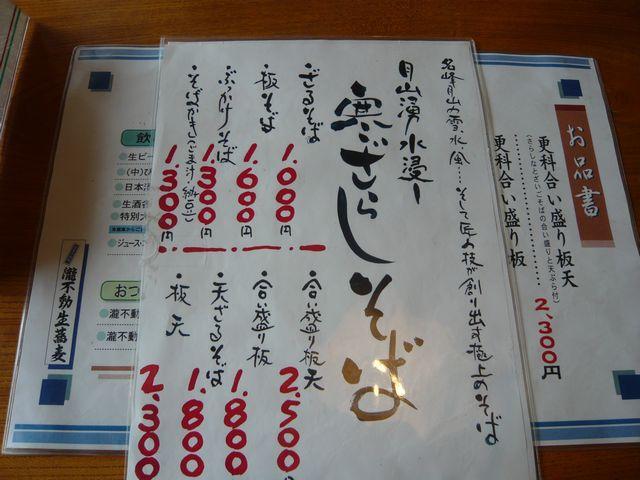 お品書
更科合い盛り板天
(さらしなとざいごそばの合い盛りと天ぷら付)
2,300円
更科合い盛り板
名峰月山の雪、水、風…そして匠の技が創り出す極上のそば
月山湧水浸し
寒ざらしそば
・ざるそば 1.000円
・板そば 1.600円
・ぶっかけそば 1.300円
・そばがき(ごま汁・納豆) 1.300円
・合い盛り板天 2.500
・合い盛り板 1.800
・天ざるそば 1.800
・板天 2.300
飲
生ビー
(中)び
日本酒
生酒
特別
ジュース
おつ
瀧不動
瀧不動
瀧不動生蕎麦